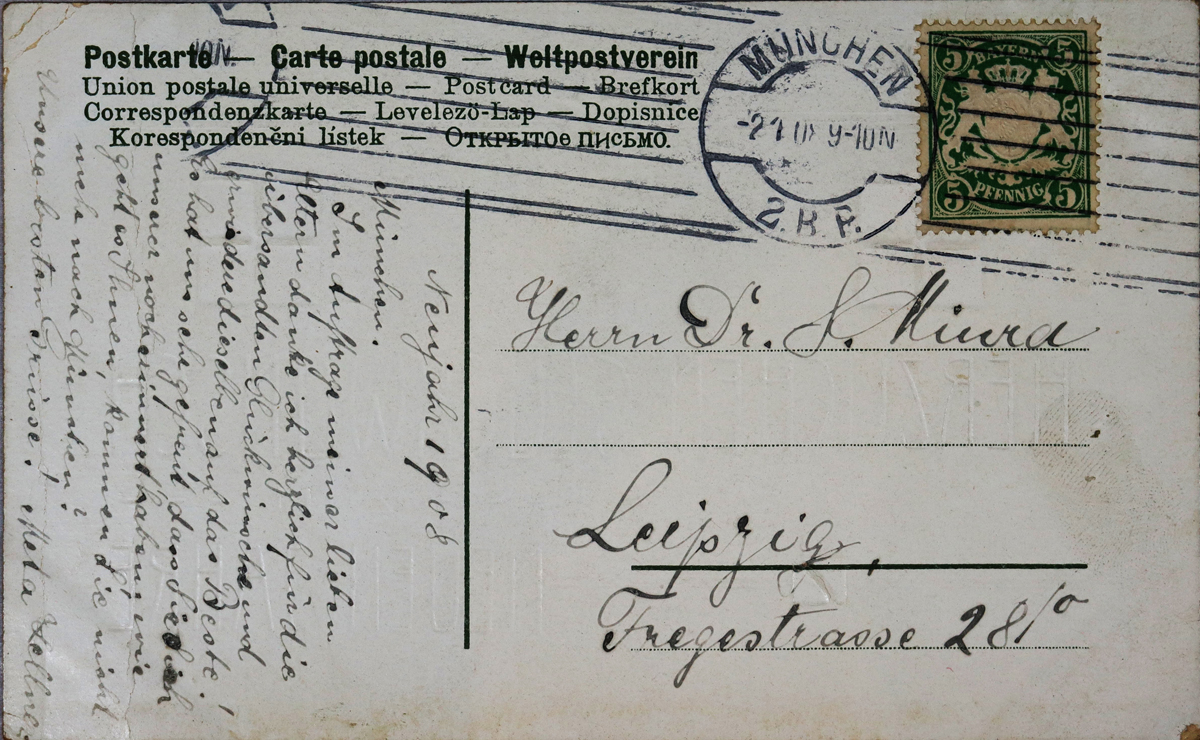 Postkarte — Carte postale — Weltpostverein
Union postale universelle — Postcard — Brefkort
Correspondenzkarte — Levelező-Lap — Dopisnice
Korespondenční lístek — Открытое письмо.
MÜNCHEN
9-10 N
2. B. P.
5 BAYERN 5
5 PFENNIG 5
Herrn Dr. S. Miura
Leipzig,
Fregestrasse 28 Io
Neujahr 1908
München.
Im Auftrage meiner lieben
Eltern danke ich herzlich für die
übersandten Glückwünsche und
erwidere dieselben auf das Beste,
Es hat uns sehr gefreut dass Sie sich
immer noch erinnert haben, wie
geht es Ihnen, kommen Sie nicht
mehr nach München?
Unsere besten Grüsse! Meta